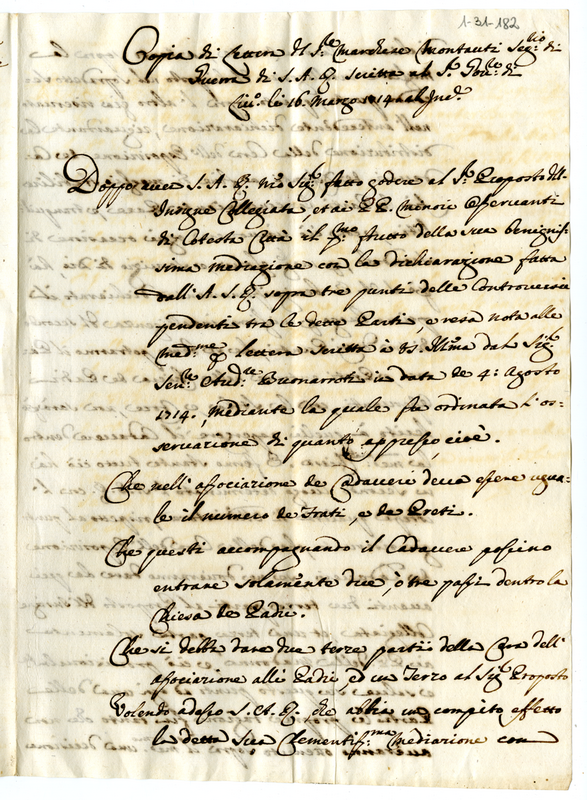 1-31-182
Copia di Lettera del S.re Marchese Montauti Seg.rio di
Guerra di S. A. R. scritta al S.r Gov.re di
Liv.o li 16. Marzo 1714 ab Inc.e
Doppo aver S. A. R. n̄ro Sig.re fatto godere al S.r Proposto dell'
Insigne Collegiata, et ai PP. Minori Osservanti
di Cotesta Città il p.mo frutto della sua benignis-
sima mediazione con la dichiarazione fatta
dall' A. S. R. sopra tre punti delle Controversie
pendenti tra le dette Parti, e resa nota alle
med.me p lettera scritta à VS. Ill̄ma dal Sig.re
Sen.re Aud.re Buonarroti in data de 4: Agosto
1714., mediante la quale fu ordinata l' os-
servazione di quanto appresso, cioè.
Che nell' associazione de Cadaveri deva essere ugua-
le il numero de Frati, e de Preti.
Che questi accompagnando il Cadavere possino
entrare solam̄ente due, ò tre passi dentro la
Chiesa de Padri.
Che si debba dare due terze parti della Cera dell'
associazione alli Padri, ed un Terzo al Sig.re Proposto
Volendo adesso S. A. R., che abbia un compito effetto
la detta Sua Clementiss.ma Mediazione con